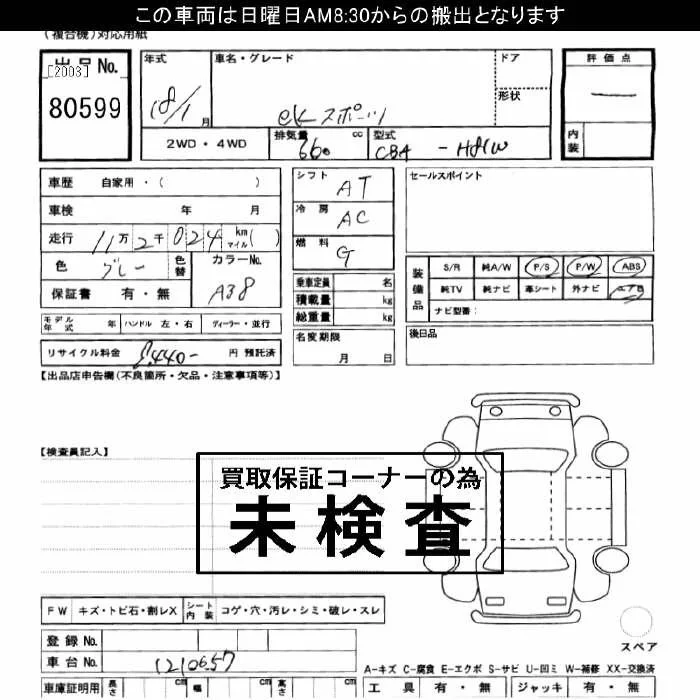 この車両は日曜日AM8:30からの搬出となります
(複合機)対応用紙
出品No. [2003] 80599
年式 18/1 月
車名・グレード eKスポーツ
ドア
形状
評価点 —
内装
2WD・4WD
排気量 660 cc
型式 CBA - H81W
車歴 自家用・( )
車検 年 月
走行 11万2千024 km マイル( )
色 グレー 色替 カラーNo. A38
保証書 有・無
シフト AT
冷房 AC
燃料 G
乗車定員 名
積載量 kg
総重量 kg
名変期限 月 日
セールスポイント
装備品 S/R 純A/W P/S P/W ABS
純TV 純ナビ 革シート 外ナビ エアB
ナビ型番:
後日品
モデル年式 年 ハンドル 左・右 ディーラー・並行
リサイクル料金 8,440- 円 預託済
【出品店申告欄(不良箇所・欠品・注意事項等)】
【検査員記入】
買取保証コーナーの為
未検査
FW キズ・トビ石・割レX シート内装 コゲ・穴・汚レ・シミ・破レ・スレ
登録No.
車台No. 1210657
スペア
A-キズ C-腐食 E-エクボ S-サビ U-凹ミ W-補修 XX-交換済
車庫証明用 長さ cm 幅 cm 高さ cm
工具 有・無 ジャッキ 有・無